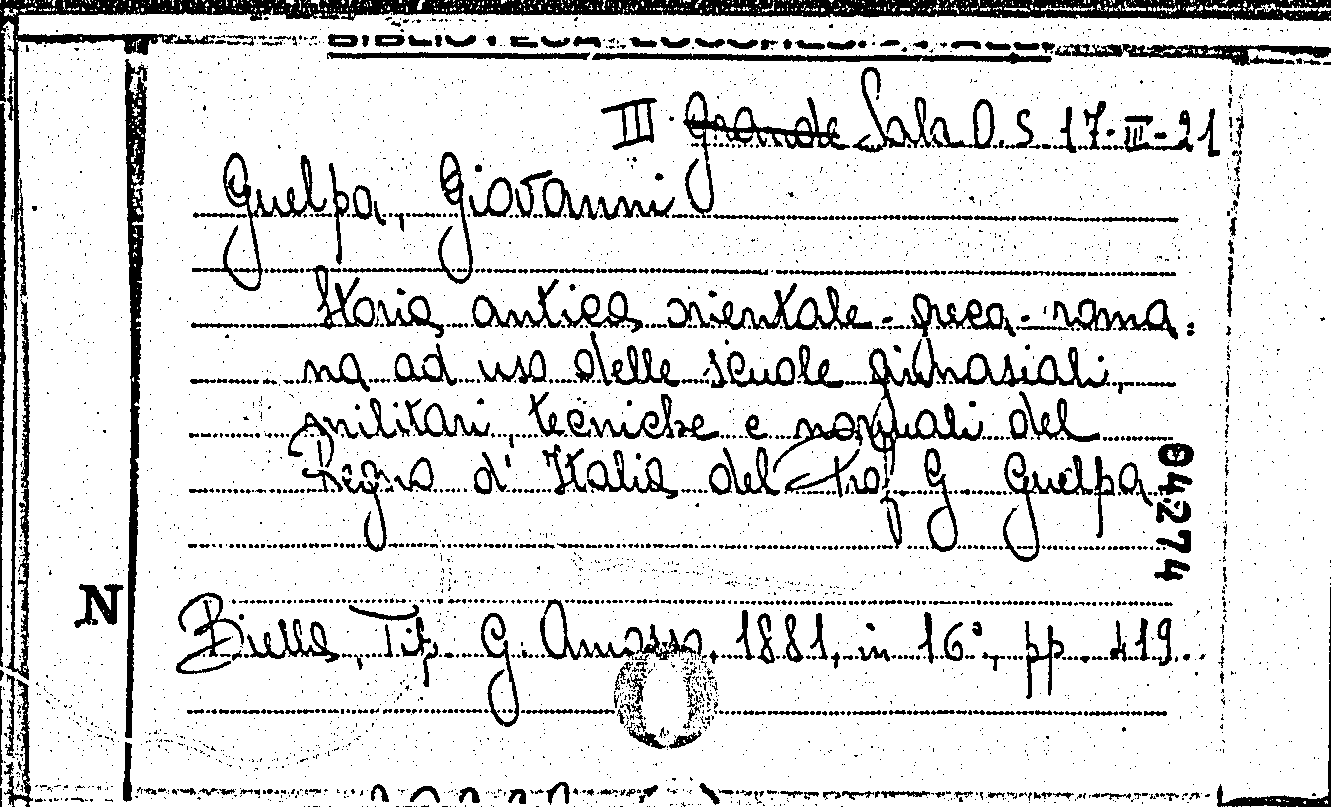 III Grande Sala O.S. 17-III-21
Guelpa, Giovanni
Storia antica orientale-greca-roma=
na ad uso delle scuole ginnasiali,
militari, tecniche e normali del
Regno d'Italia del Prof G Guelpa
04274
N
Biella, Tip. G. Amosso, 1881, in 16°, pp. 419.